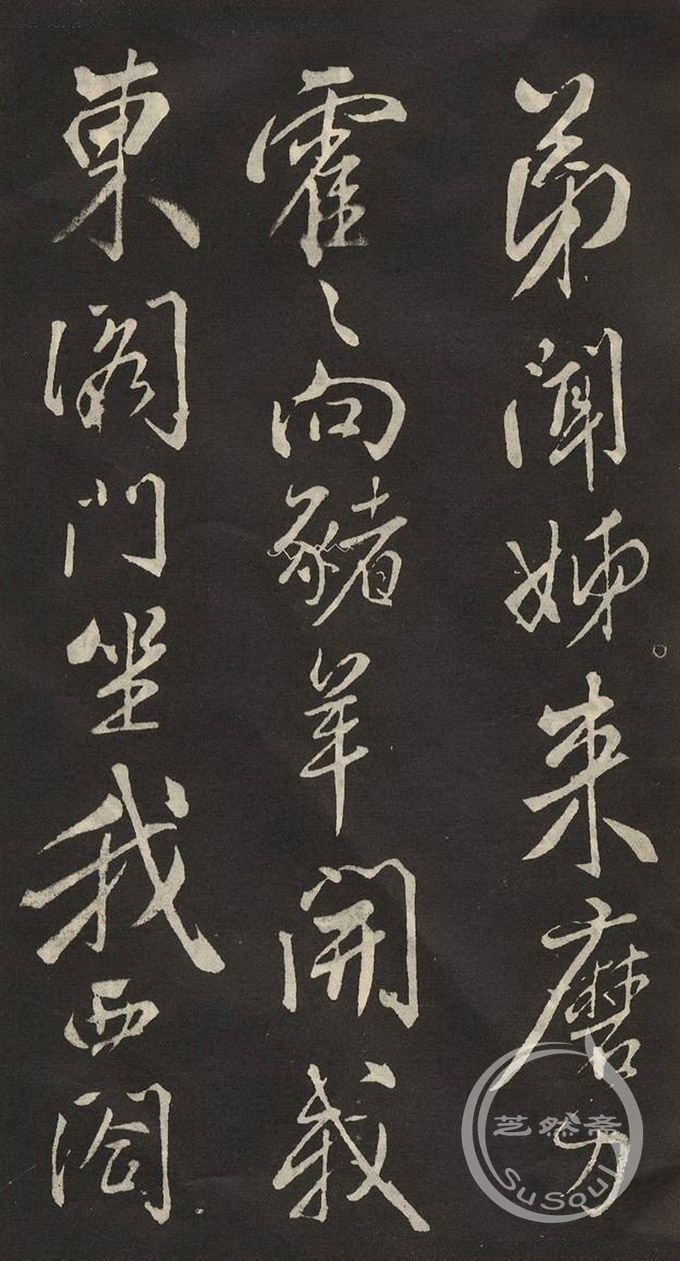 弟聞姊来磨刀
霍〻向豬羊開我
東阁門坐我西閤
芝然斋
SuSoul